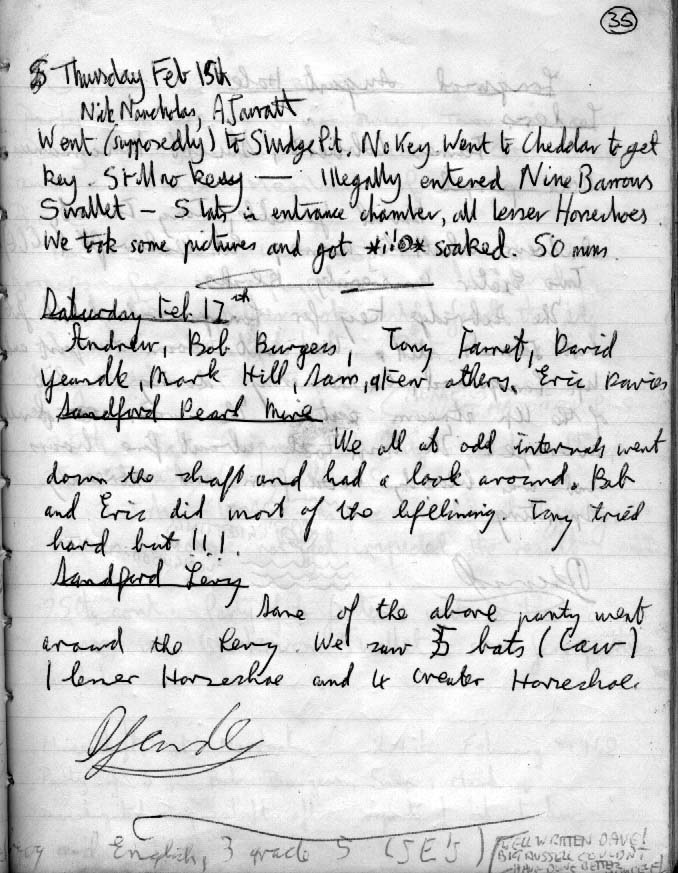 35
Thursday Feb 15th
Nick Nancholas, A Jarratt
Went (supposedly) to Sludge Pit. No Key. Went to Cheddar to get
key. Still no key — Illegally entered Nine Barrows
Swallet — 5 bats in entrance chamber, all lesser Horseshoes.
We took some pictures and got *!!@* soaked. 50 mins.
Saturday Feb. 17th
Andrew, Bob Burgess, Tony Jarret, David
Yeandle, Mark Hill, Sam, a few others, Eric Davies
Sandford Pearl Mine
We all at odd intervals went
down the shaft and had a look around. Bob
and Eric did most of the lifelining. Tony tried
hard but !!!.
Sandford Levy
Some of the above party went
around the Levy. We saw 5 bats (Caw)
1 lesser Horseshoe and 4 Greater Horseshoe.
DYeandle
and English, 3 grade 5 (SE's)
WELL WRITTEN DAVE!
BIG RUSSELL COULDN'T
HAVE DONE BETTER